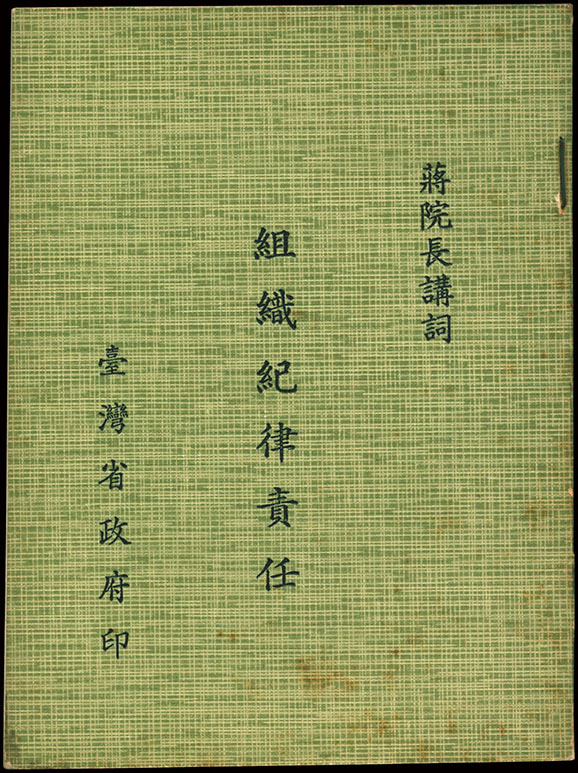 蔣院長講詞
組織紀律責任
臺灣省政府印